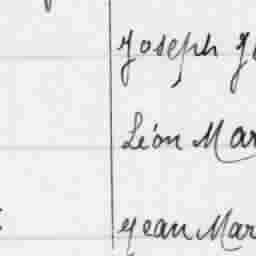 Joseph
Léon Mar
Jean Mar